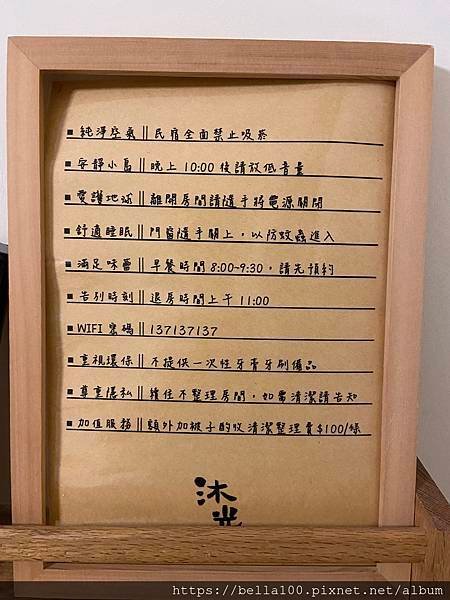 ■ 純淨空氣 || 民宿全面禁止吸菸
■ 寧靜小島 || 晚上 10:00 後請放低音量
■ 愛護地球 || 離開房間請隨手將電源關閉
■ 舒適睡眠 || 門窗隨手關上，以防蚊蟲進入
■ 滿足味蕾 || 早餐時間 8:00~9:30，請先預約
■ 告別時刻 || 退房時間上午 11:00
■ WIFI 密碼 || 137137137
■ 重視環保 || 不提供一次性牙膏牙刷備品
■ 尊重隱私 || 續住不整理房間，如需清潔請告知
■ 加值服務 || 額外加被子酌收清潔整理費$100/條
沐光
https://bella100.pixnet.net/album